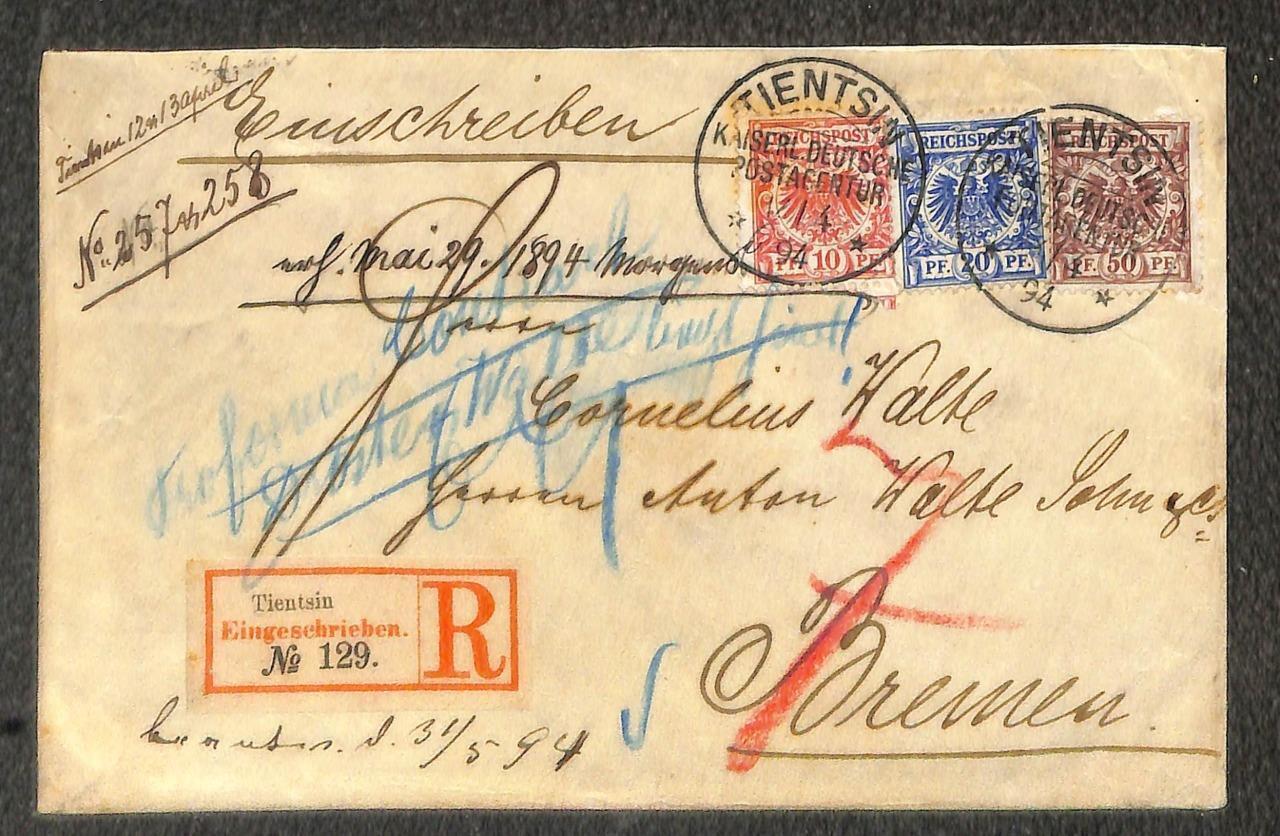 Tientsin 12 u 13 april
Einschreiben
No. 257 u 258
TIENTSIN
KAISERL. DEUTSCHE
POSTAGENTUR
1 4
94
REICHSPOST
PF. 10 PF.
REICHSPOST
PF. 20 PF.
REICHSPOST
PF. 50 PF.
TIENTSIN
KAISERL. DEUTSCHE
POSTAGENTUR
94
erh. Mai 29. 1894 Morgens
Herrn
Cornelius Walte
Herren Anton Walte Sohn & Co
Tientsin
Eingeschrieben.
No 129.
R
Bremen.
beantw. d. 31/5 94